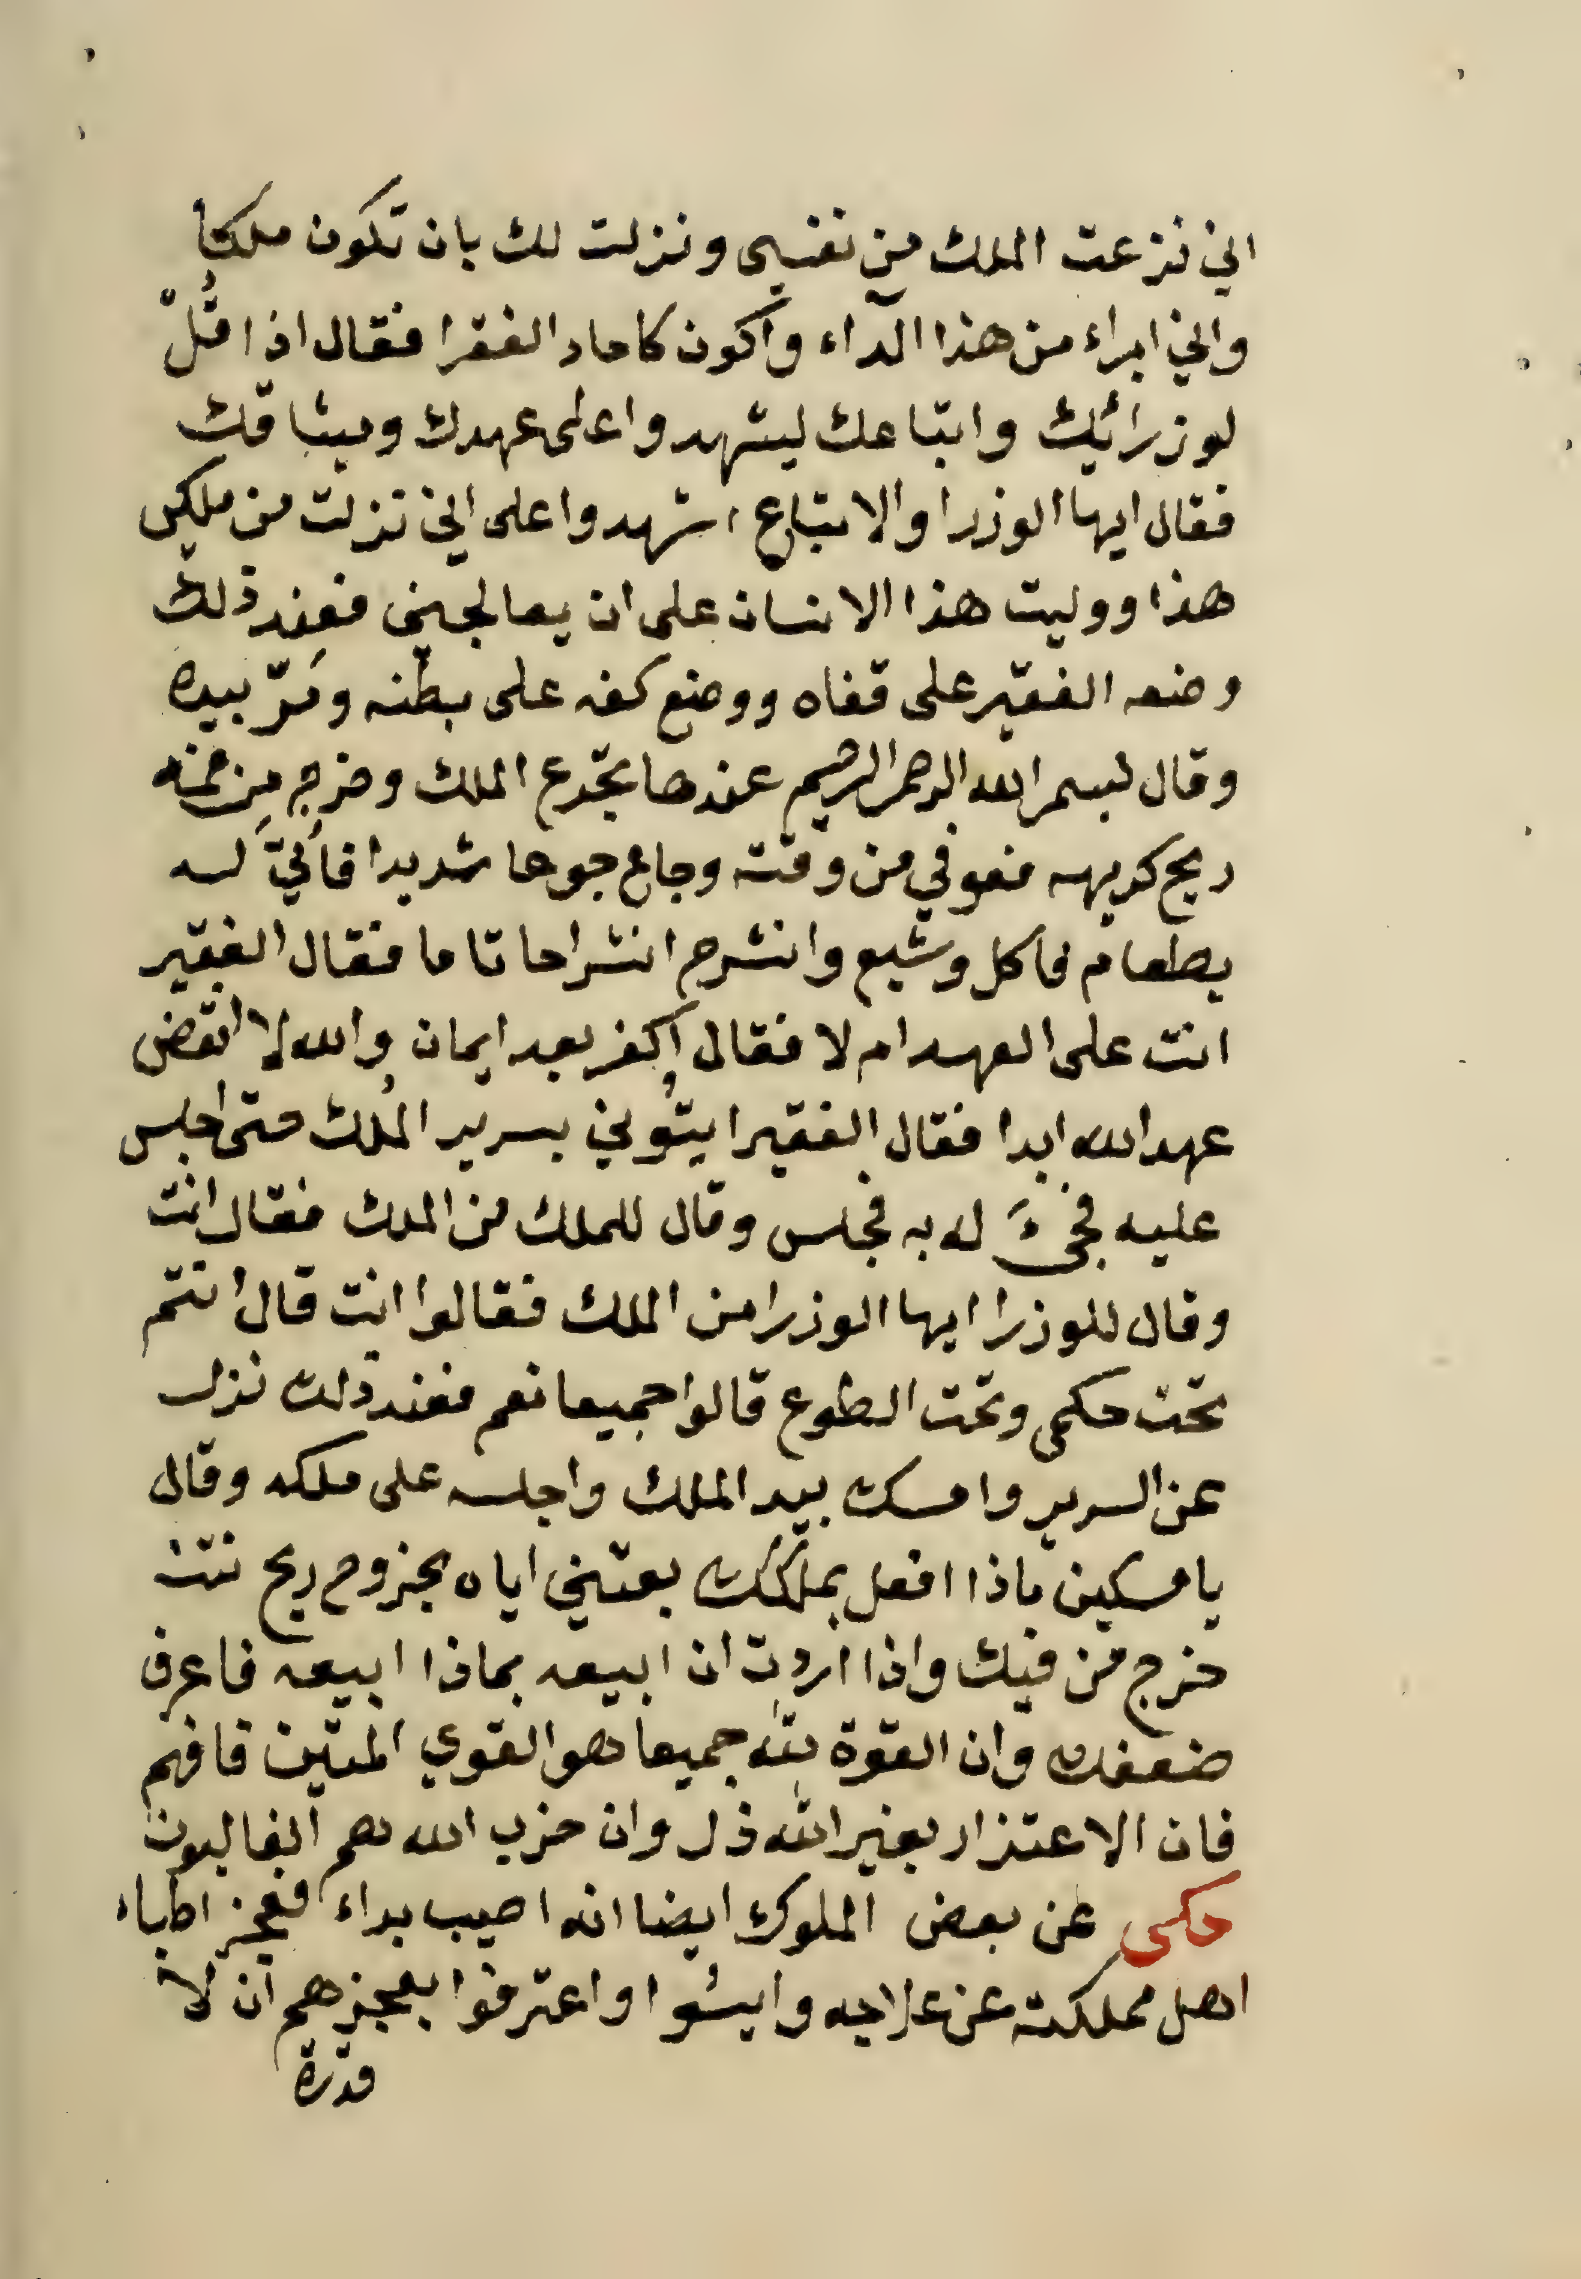 اني نزعت الملك من نفسي ونزلت لك بان تكون ملكا
واني ابراء من هذا الدآء واكون كاحاد الفقرا فقال اذا قُلْ
لوزرائك واتباعك ليشهدوا على عهدك وميثاقك
فقال ايها الوزرا والاتباع اشهدوا على اني نزلت من ملكي
هذا ووليت هذا الانسان على ان يعالجني فعند ذلك
وضعه الفقير على قفاه ووضع كفه على بطنه ومَرّ بيده
وقال بسم الله الرحمن الرحيم عندها تجرع الملك وخرج من فمه
ريح كريهه فعوفي من وقته وجاع جوعا شديدا فاُتيَ له
بطعام فاكل وشبع وانشرح انشراحا تاما فقال الفقير
انت على العهد ام لا فقال اكفر بعد ايمان والله لا انقض
عهد الله ابدا فقال الفقير ايتُوني بسرير المُلك حتى اجلس
عليه فجئَ له به فجلس وقال للملك من الملك فقال انت
وقال للوزرا ايها الوزرا من الملك فقالوا انت قال انتم
تحت حكمي وتحت الطوع قالوا جميعا نعم فعند ذلك نزل
عن السرير وامسك بيد الملك واجلسه على ملكه وقال
يا مسكين ماذا افعل بملكك بعتني اياه بخروج ريح نتن
خرج من فيك واذا اردت ان ابيعه بماذا ابيعه فاعرف
ضعفك وان القوة لله جميعا هو القوي المتين فافهم
فان الاعتزاز بغير الله ذل وان حزب الله هم الغالبون
حكى عن بعض الملوك ايضا انه اصيب بداء فعجز اطباء
اهل مملكته عن علاجه وايسُوا واعترفوا بعجزهم ان لا
قدرة